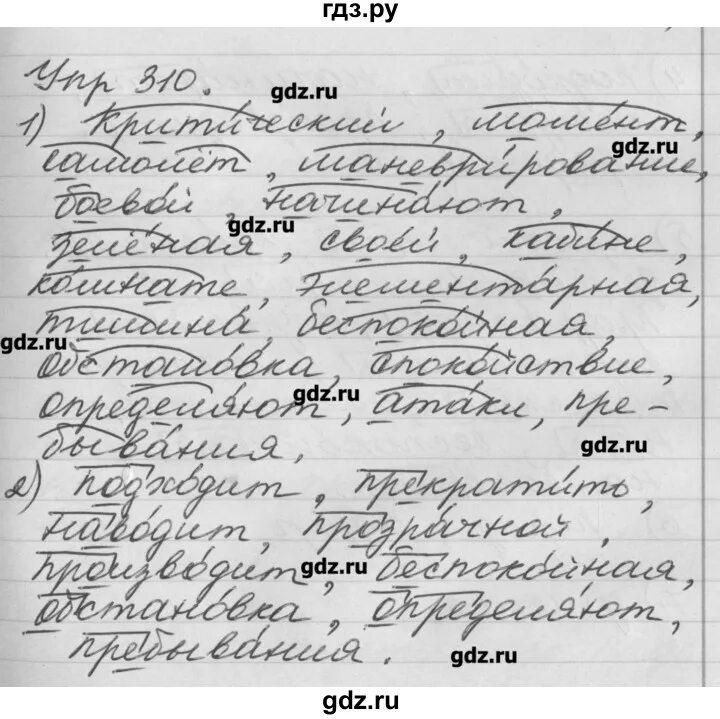 гдз.ру
Упр 310.
gdz.ru
1) Крити́ческий, моме́нт,
gdz.ru
самолёт, маневри́рование,
боево́й, начина́ют,
gdz.ru
зелёная, свое́й, каби́не,
ко́мнате, элемента́рная,
тишина́, беспоко́йная,
gdz.ru
обстано́вка, споко́йствие,
gdz.ru
определя́ют, ата́ки, пре-
быва́ния,
gdz.ru
2) подхо́дит, прекрати́ть,
наво́дит, прозра́чной,
произво́дит, беспоко́йная,
gdz.ru
обстано́вка, определя́ют,
пребыва́ния.
gdz.ru
gdz.ru